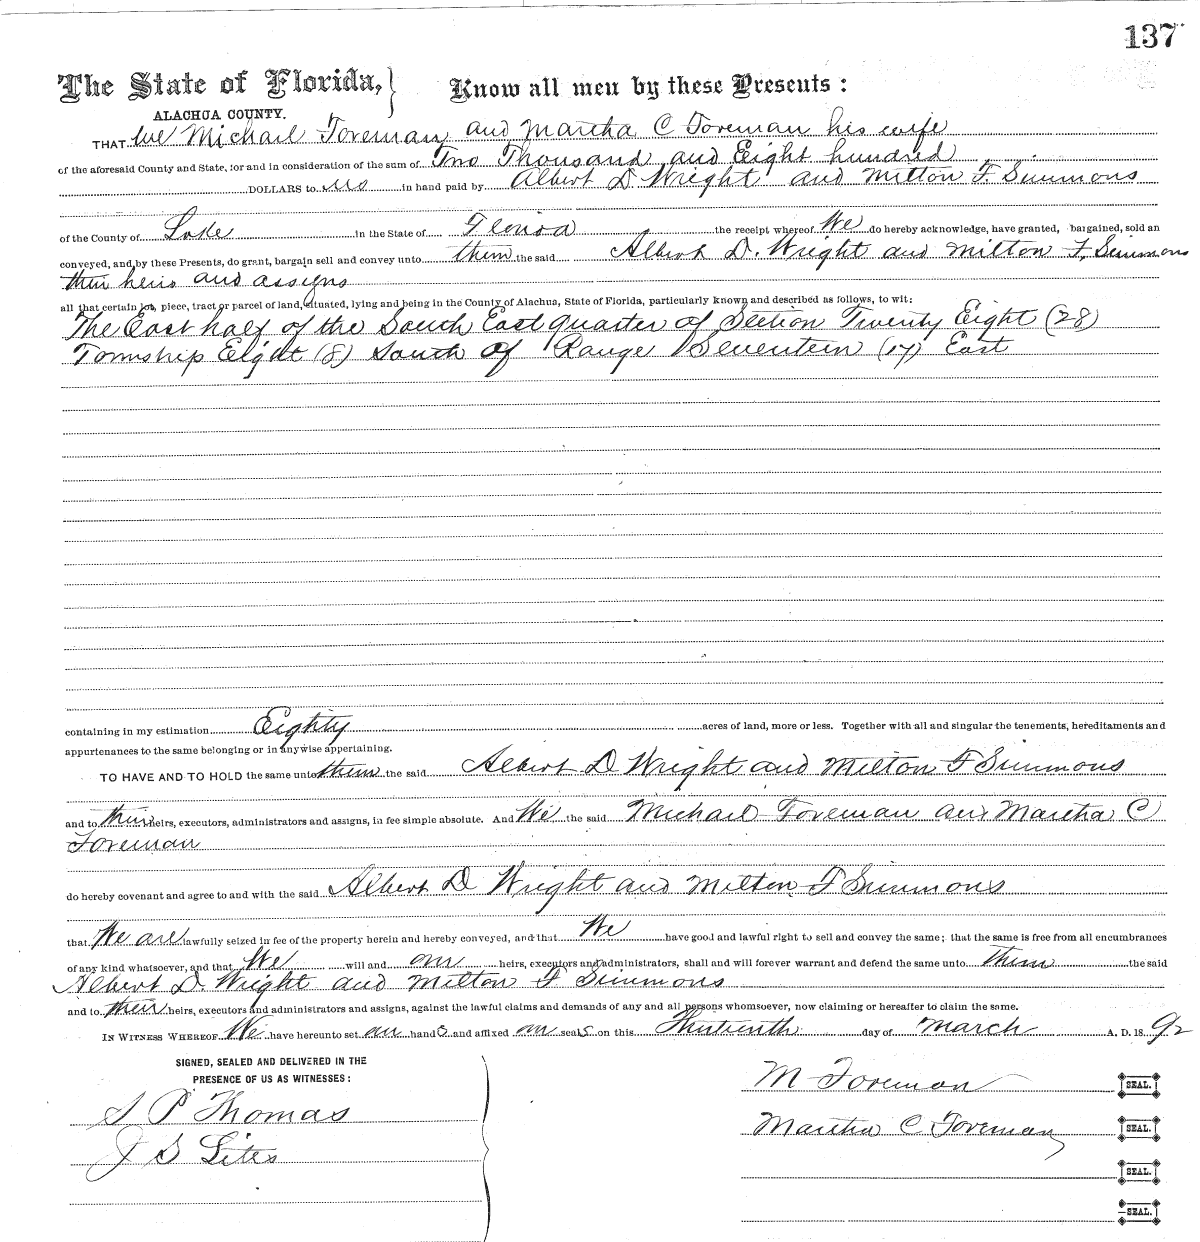 137
The State of Florida, } Know all men by these Presents :
ALACHUA COUNTY.
THAT We Michael Foreman and Martha C Foreman his wife
of the aforesaid County and State, for and in consideration of the sum of Two Thousand and Eight hundred
DOLLARS to us in hand paid by Albert D Wright and Milton F. Simmons
of the County of Lake in the State of Florida the receipt whereof We do hereby acknowledge, have granted, bargained, sold an
conveyed, and by these Presents, do grant, bargain sell and convey unto them the said Albert D. Wright and Milton F. Simmons
their heirs and assigns
all that certain lot, piece, tract or parcel of land, situated, lying and being in the County of Alachua, State of Florida, particularly known and described as follows, to wit:
The East half of the South East quarter of Section Twenty Eight (28)
Township Eight (8) South of Range Seventeen (17) East
containing in my estimation Eighty acres of land, more or less. Together with all and singular the tenements, hereditaments and
appurtenances to the same belonging or in anywise appertaining.
TO HAVE AND TO HOLD the same unto them the said Albert D Wright and Milton F Simmons
and to their heirs, executors, administrators and assigns, in fee simple absolute. And We the said Michael Foreman and Martha C
Foreman
do hereby covenant and agree to and with the said Albert D Wright and Milton F Simmons
that We are lawfully seized in fee of the property herein and hereby conveyed, and that We have good and lawful right to sell and convey the same; that the same is free from all encumbrances
of any kind whatsoever, and that We will and our heirs, executors and administrators, shall and will forever warrant and defend the same unto them the said
Albert D. Wright and Milton F Simmons
and to their heirs, executors and administrators and assigns, against the lawful claims and demands of any and all persons whomsoever, now claiming or hereafter to claim the same.
IN WITNESS WHEREOF We have hereunto set our hands and affixed our seals on this Thirteenth day of March A. D. 1892
SIGNED, SEALED AND DELIVERED IN THE
PRESENCE OF US AS WITNESSES :
M Foreman SEAL.
S P Thomas
Martha C. Foreman SEAL.
J S Sites
SEAL.
SEAL.